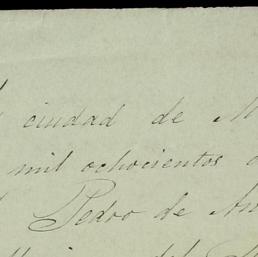 ciudad de M
mil ochocientos
Pedro de An
del